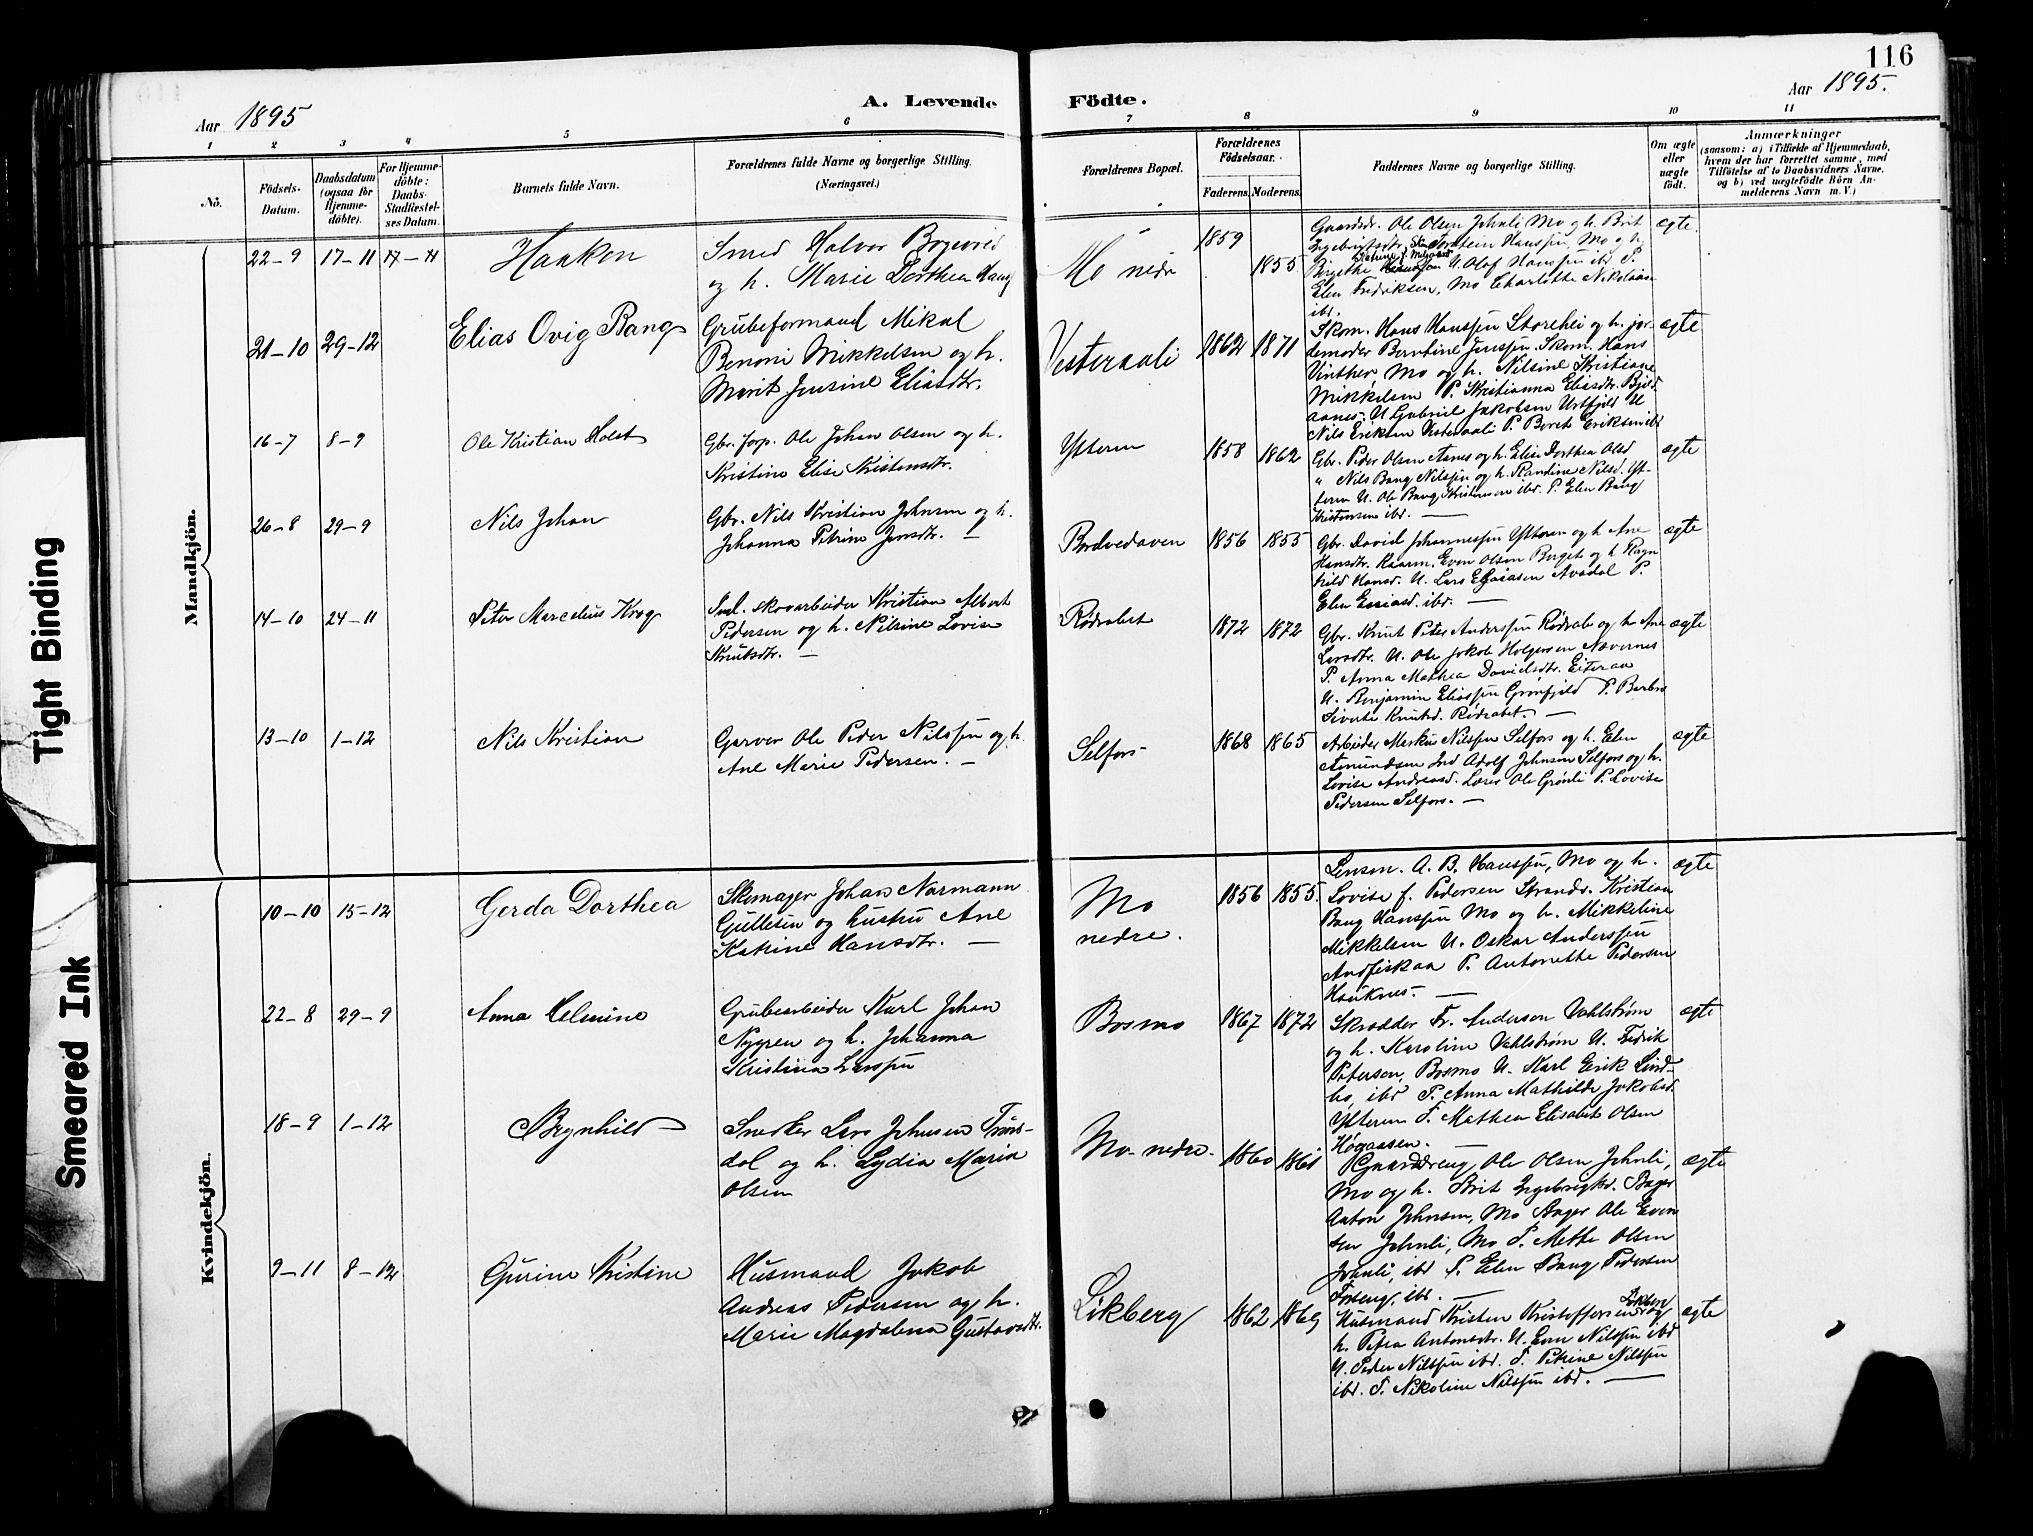 116
Aar 1895
A. Levende
Födte.
Aar 1895.
1 2 3 4 5 6 7 8 9 10 11
No.
Födsels-
Datum.
Daabsdatum
(ogsaa for
Hjemme-
döbte).
For Hjemme-
döbte:
Daabs-
Stadfæstel-
ses Datum.
Barnets fulde Navn.
Forældrenes fulde Navne og borgerlige Stilling.
(Næringsvei.)
Forældrenes Bopæl.
Forældrenes
Födselsaar.
Faderens. Moderens.
Faddernes Navne og borgerlige Stilling.
Om ægte
eller
uægte
födt.
Anmærkninger
(saasom: a) i Tilfælde af Hjemmedaab,
hvem der har forrettet samme, med
Tilföielse af to Daabsvidners Navne,
og b) ved uægtefödte Börn An-
melderens Navn m. V.)
Mandkjön.
22-9 17-11
Haakon
Smed Halvor
og h. Marie Dorthea Hans
Mo nedr
1859
1855
Gaardsdr. Ole Olsen Johnli Mo og h. Brit
Torstein Hanssen, Mo og h.
U. Olaf Hanssen ibd P.
Elen Fredriksen, Mo Charlotte Nikolaisen
ibd.
ægte.
21-10 29-12
Elias Ovig Bang
Grubeformand Mikal
Benoni Mikkelsen og h.
Marit Jensine Eliasdtr.
Vesteraali
1862 1871
Skom. Hans Hanssen Storehei og h. jor-
demoder Berntine Jenssen. Skom. Hans
Vinther Mo og h. Nilsine Kristiane
Mikkelsen P. Kristianna Eliasdtr. Bjeld
aanes. U Gabriel Jakobsen Urtfjeld U
Nils Eriksen Vesteraali P. Beret Eriksen ibd
ægte
16-7 8-9
Ole Kristian Holst
Gbr. Ole Johan Olsen og h.
Kristine Elise Kristensdtr.
Ytteren
1858 1862
Gbr. Peder Olsen Aanes og h. Elen Dorthea Olsd
" Nils Bang Nilssen og h. Randine Nilsd. Yt-
teren U. Ole Bang Kristensen ibd. P. Elen Bang
Kristensen ibd. —
ægte
26-8 29-9
Nils Johan
Gbr. Nils Kristian Johnsen og h.
Johanna Petrine Jensdtr. —
Bordvedaven
1856 1855
Gbr. David Johannessen Ytteren og h Ane
Hansdtr. Kaarm. Even Olsen Berget og h Ragn
hild Hansd. U. Lars Esaiasen Avadal P.
Elen Esaiasd. ibd. —
ægte
14-10 24-11
Peter Marcelius Krog
Inl. skovarbeider Kristian Albert
Pedersen og h. Nilsine Lovise
Knutsdtr. —
Rødvabet
1872 1872
Gbr. Knut Peter Anderssen Rødvabe og h. Ane
Larsdtr. U. Ole Jakob Holgersen Nævernes
P. Anna Mathea Davidsdtr. Eiteraa
U. Benjamin Eliassen Grønfjeld P. Barbro
Siverte Knutsd. Rødvabet. —
ægte
13-10 1-12
Nils Kristian
Garver Ole Peder Nilssen og h.
Ane Marie Pedersen. —
Selfors
1868 1865
Arbeider Markus Nilssen Selfors og h. Elen
Amundsen Ind Adolf Johnsen Selfors og h.
Lovise Andreasd. Lærer Ole Grønli P. Lovise
Pedersen Selfors. —
ægte
Kvindekjön.
10-10 15-12
Gerda Dorthea
Skomager Johan Normann
Gullesen og hustru Ane
Katrine Hansdtr. —
Mo
nedre.
1856 1855.
Lensm. A. B. Hanssen, Mo og h.
Lovise f. Pedersen Strandr. Kristian
Bang Hanssen Mo og h. Mikkeline
Mikkelsen U. Oskar Anderssen
Andfiskaa P. Antonette Pedersen
Hauknes. —
ægte
22-8 29-9
Anna Helmine
Grubearbeider Karl Johan
Nygren og h. Johanna
Kristina Larssen
Bosmo
1867 1872
Skrædder Fr. Anderson Vahlstrøm
og h. Karoline Vahlstrøm U. Fredrik
Peterson, Bosmo U. Karl Erik Lind-
bo, ibd P. Anna Mathilde Jakobsd.
Ytteren P. Mathea Elisabet Olsen
Høgaasen. —
ægte
18-9 1-12
Brynhild
Snedker Lars Johnsen Træns-
dal og h. Lydia Maria
Olsen
Mo nedre.
1860 1861
Gaarddreng Ole Olsen Johnli,
Mo og h. Brit Ingebrigtsd. Bager
Anton Johnsen, Mo Bager Ole Even
sen Johnli, Mo P. Mette Olsen
Johnli, ibd P. Elen Bang Pedersen
Forberg, ibd. —
ægte
9-11 8-12
Gurine Kristine
Husmand Jakob
Andreas Pedersen og h.
Marie Magdalena Gustavsdtr.
Likberg
1862 1869
Likberg
Husmand Kristen Kristoffersen og
h. Petra Antonsdtr. U. Even Nilssen ibd
U. Peder Nilssen ibd. P. Petrine Nilssen
ibd. P. Nikoline Nilssen ibd. —
ægte
Tight Binding
Smeared Ink